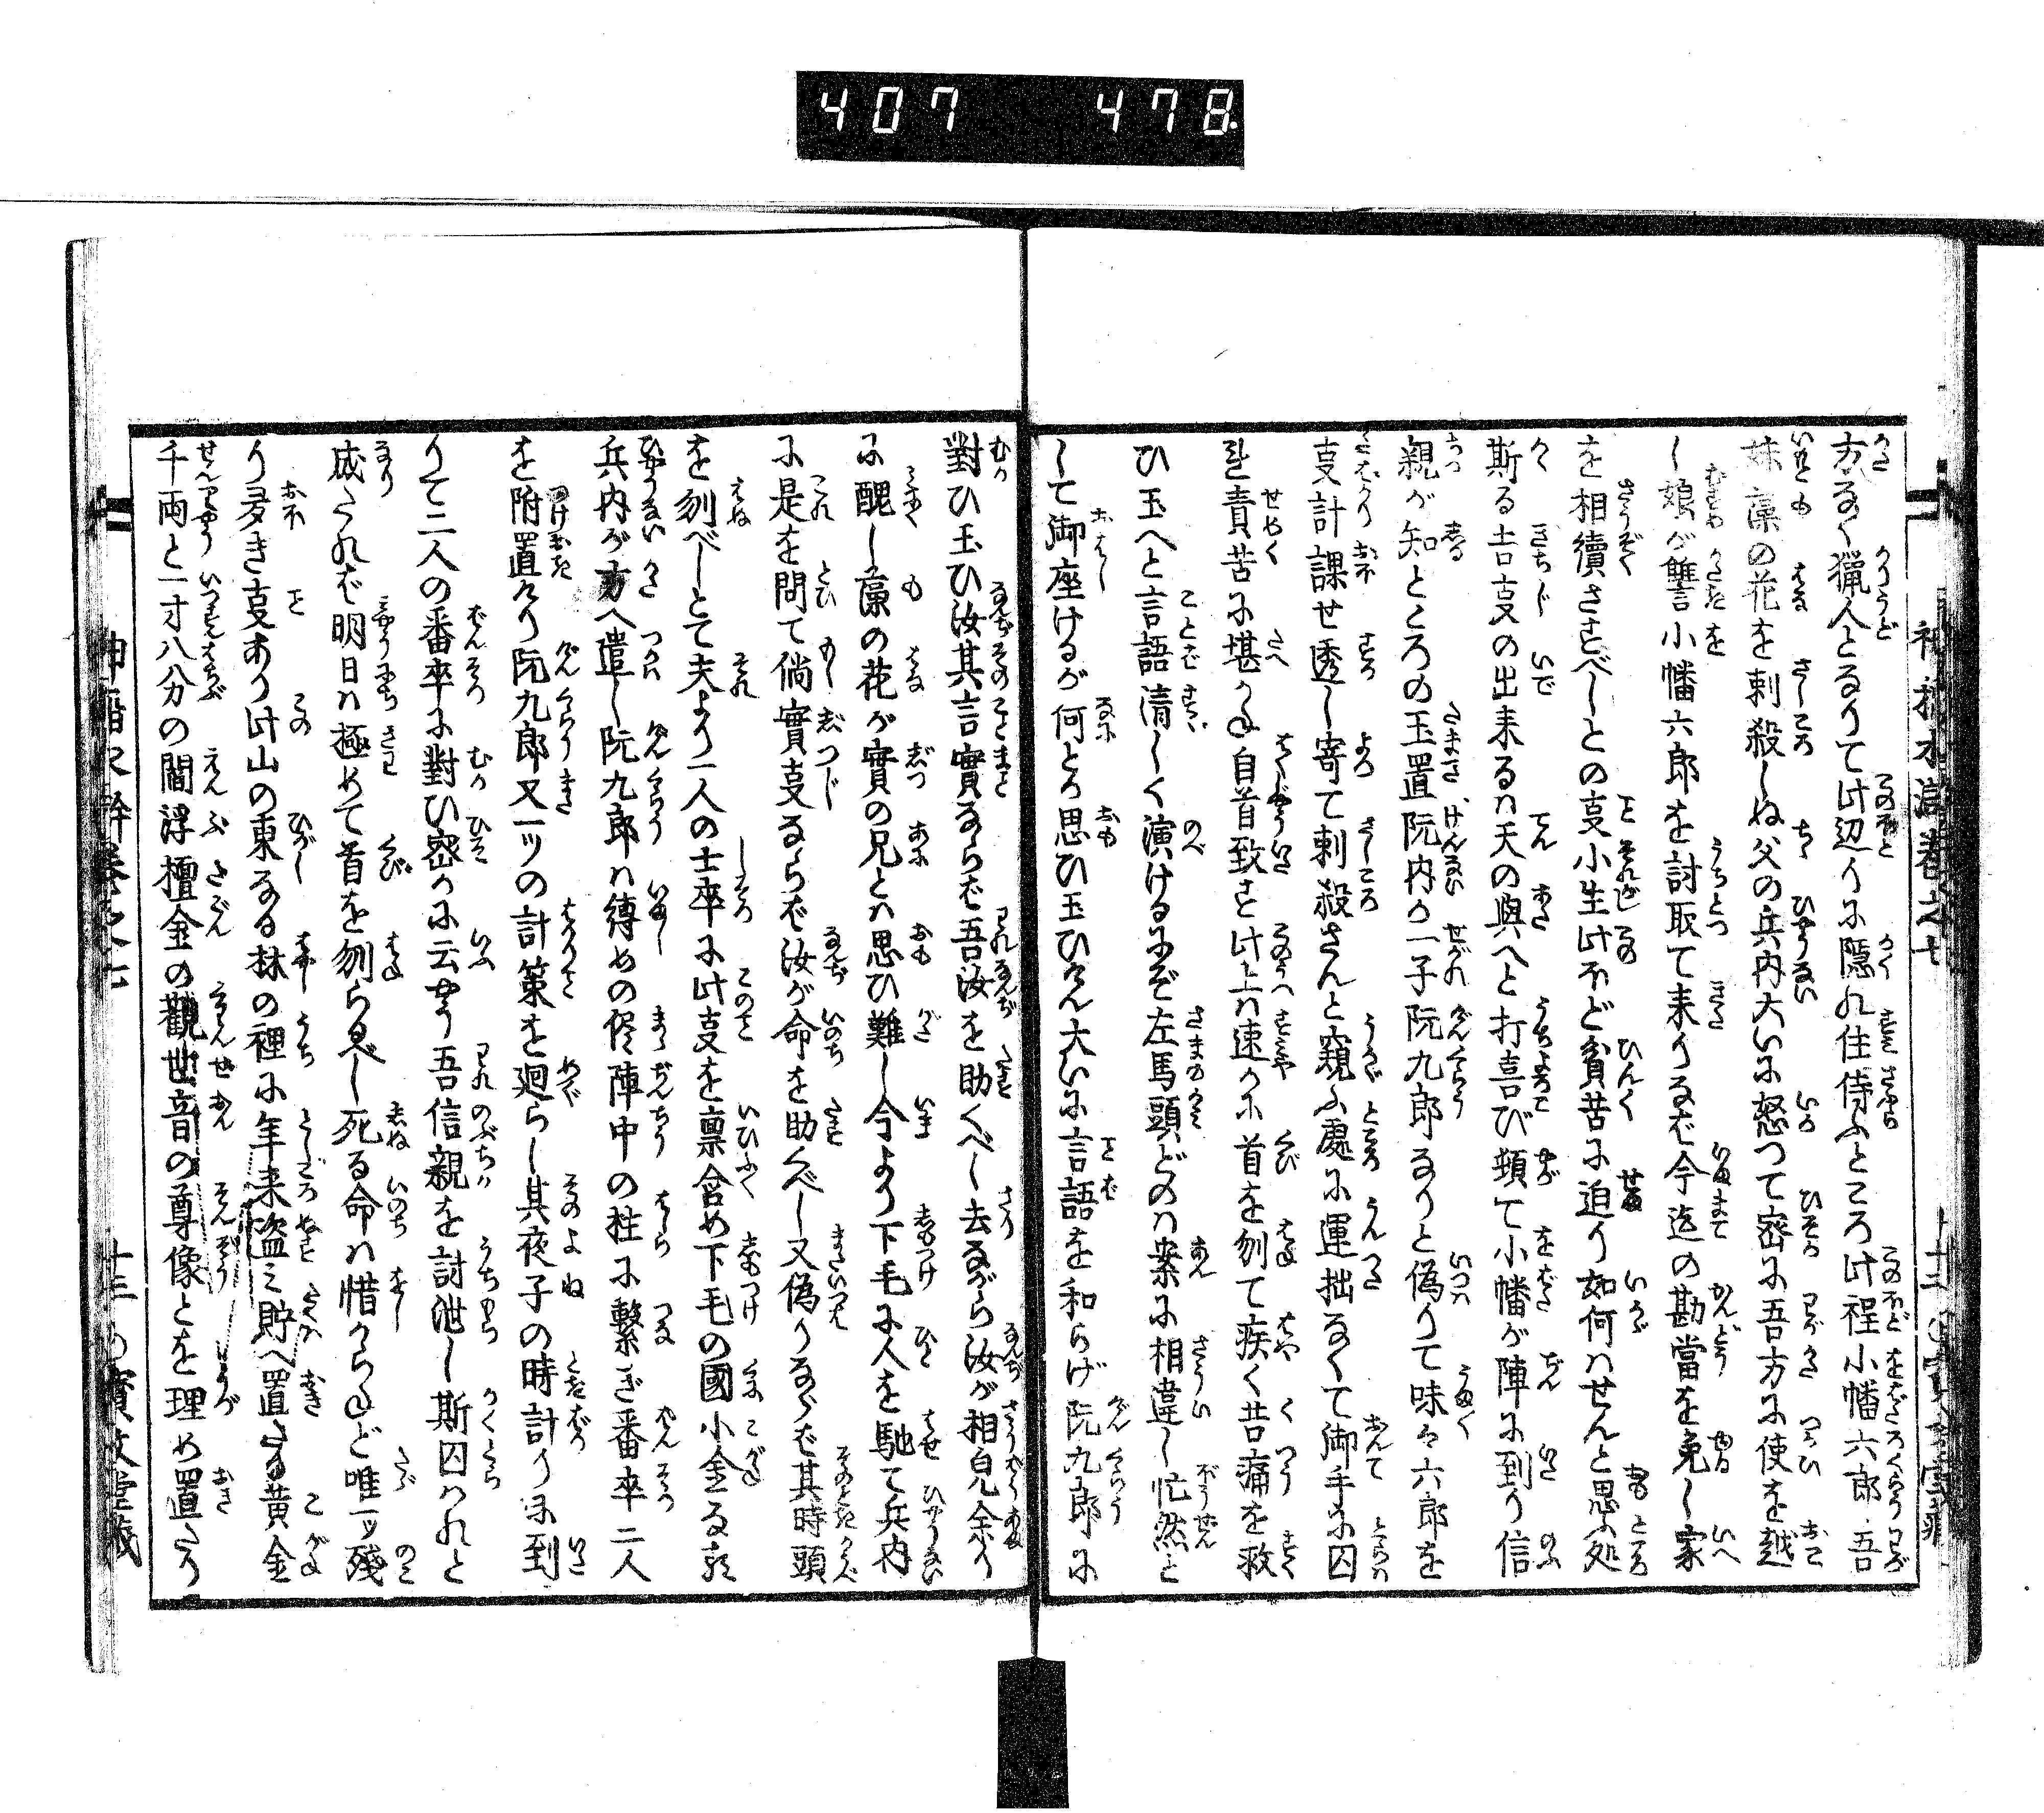 407 478
方なく猟人となりて此辺りに隠れ住侍ふところ此程小幡六郎吾
妹藻の花を刺殺しぬ父の兵内大いに怒つて密に吾方に使を越
し娘が讐小幡六郎を討取て来りなば今迄の勘當を免し家
を相續さすべしとの支小生此ほど貧苦に迫り如何はせんと思ふ処
斯る吉支の出来るは天の與へと打喜び頓て小幡が陣に到り信
親が知ところの玉置阮内の一子阮九郎なりと偽りて味々六郎を
支計課せ透し寄て刺殺さんと窺ふ處に運拙なくて御手に囚
責苦に堪かね自首致す此上は速かに首を刎て疾く苦痛を救
ひ玉へと言語清しく演けるにぞ左馬頭どのは案に相違し忙然と
して御座けるが何とか思ひ玉ひけん大いに言語を和らげ阮九郎に
對ひ玉ひ汝其言實ならば吾汝を助くべし去ながら汝が相皃余り
に醜し藻の花が實の兄とは思ひ難し今より下毛に人を馳て兵内
に是を問て倘實支ならば汝が命を助くべし又偽りならば其時頭
を刎べしとて夫より一人の士卒に此支を禀含め下毛の國小金なる
兵内が方へ遣し阮九郎は縛めの侭陣中の柱に繋ぎ番卒二人
を附置けり阮九郎又一ツの計策を廻らし其夜子の時計りに到
りて二人の番卒に對ひ密かに云やう吾信親を討泄し斯囚はれと
成たれば明日は極めて首を刎らるべし死る命は惜からねど唯一ツ残
り多き支あり此山の東なる林の裡に年来盗み貯へ置たる黄金
千両と一寸八分の閻浮檀金の觀世音の尊像とを理め置たり